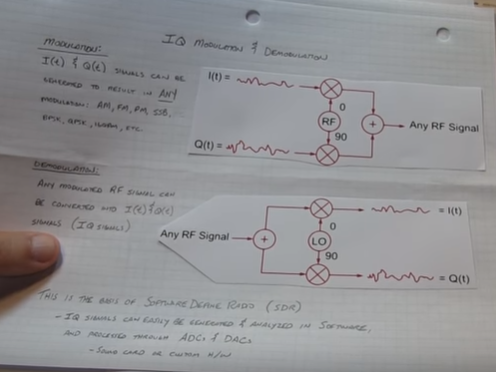 IQ MODULATION & DEMODULATION
MODULATION:
I(t) & Q(t) SIGNALS CAN BE
GENERATED TO RESULT IN ANY
MODULATION: AM, FM, PM, SSB,
BPSK, QPSK, 16QAM, ETC.
I(t) =
0
RF
+
Any RF Signal
90
Q(t) =
DEMODULATION:
ANY MODULATED RF SIGNAL CAN
BE CONVERTED INTO I(t) & Q(t)
SIGNALS (IQ SIGNALS)
= I(t)
0
Any RF Signal
+
LO
90
= Q(t)
THIS IS THE BASIS OF SOFTWARE DEFINE RADIO (SDR)
- IQ SIGNALS CAN EASILY BE GENERATED & ANALYZED IN SOFTWARE,
AND PROCESSED THROUGH ADCs & DACs
- SOUND CARD OR CUSTOM H/W